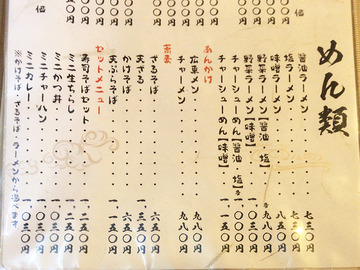 めん類
醤油ラーメン・・・・・七三〇円
塩ラーメン・・・・・七三〇円
味噌ラーメン・・・・・八三〇円
野菜ラーメン【醤油 塩】
野菜ラーメン【味噌】
チャーシューめん【醤油 塩】
チャーシューめん【味噌】・・一一五〇円
あんかけ
広東メン・・・・・九八〇円
チャーメン・・・・・九八〇円
蕎麦
ざるそば・・・・・六五〇円
天ざる・・・・・一三五〇円
かけそば・・・・・六五〇円
天ぷらそば・・・・・一一五〇円
セットメニュー
寿司そばセット・・・・・一二五〇円
ミニ生ちらし・・・・・一二五〇円
ミニかつ丼・・・・・一〇五〇円
ミニチャーハン・・・・・一〇三〇円
ミニカレー・・・・・一〇三〇円
※かけそば・ざるそば・ラーメンから選べます